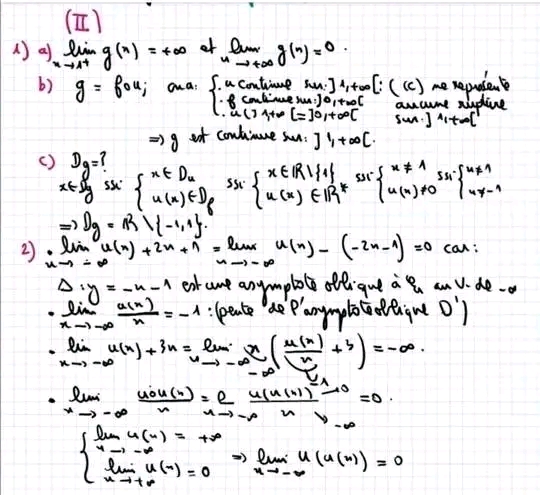 (II)
1) a) lim g(x) = +∞ et lim g(x) = 0 .
x→1+ x→+∞
b) g = fou; on a: { . u continue sur: ]1,+∞[ : (C) ne représente
. f continue sur: ]0,+∞[ aucune rupture
. u(]1,+∞[) = ]0,+∞[ sur ]1,+∞[
⇒ g est continue sur: ]1,+∞[.
c) Dg = ?
x∈Dg ssi { x∈Du u(x)∈Df ssi { x∈ℝ\{1} u(x)∈ℝ* ssi { x≠1 u(x)≠0 ssi { x≠1 x≠-1
⇒ Dg = ℝ\{-1,1}.
2) . lim u(x)+2x+1 = lim u(x) - (-2x-1) = 0 car:
x→-∞ x→-∞
Δ: y = -x-1 est une asymptote oblique à au V. de -∞
. lim u(x)/x = -1 : (pente de l'asymptote oblique D')
x→-∞
. lim u(x)+3x = lim x ( u(x)/x + 3 ) = -∞ .
x→-∞ x→-∞ -∞ -1
. lim uou(x)/x = u(u(x))→0 / x = 0 .
x→-∞ x→-∞ ↘-∞
{ lim u(x) = +∞
x→-∞
lim u(x) = 0 ⇒ lim u(u(x)) = 0
x→+∞ x→-∞